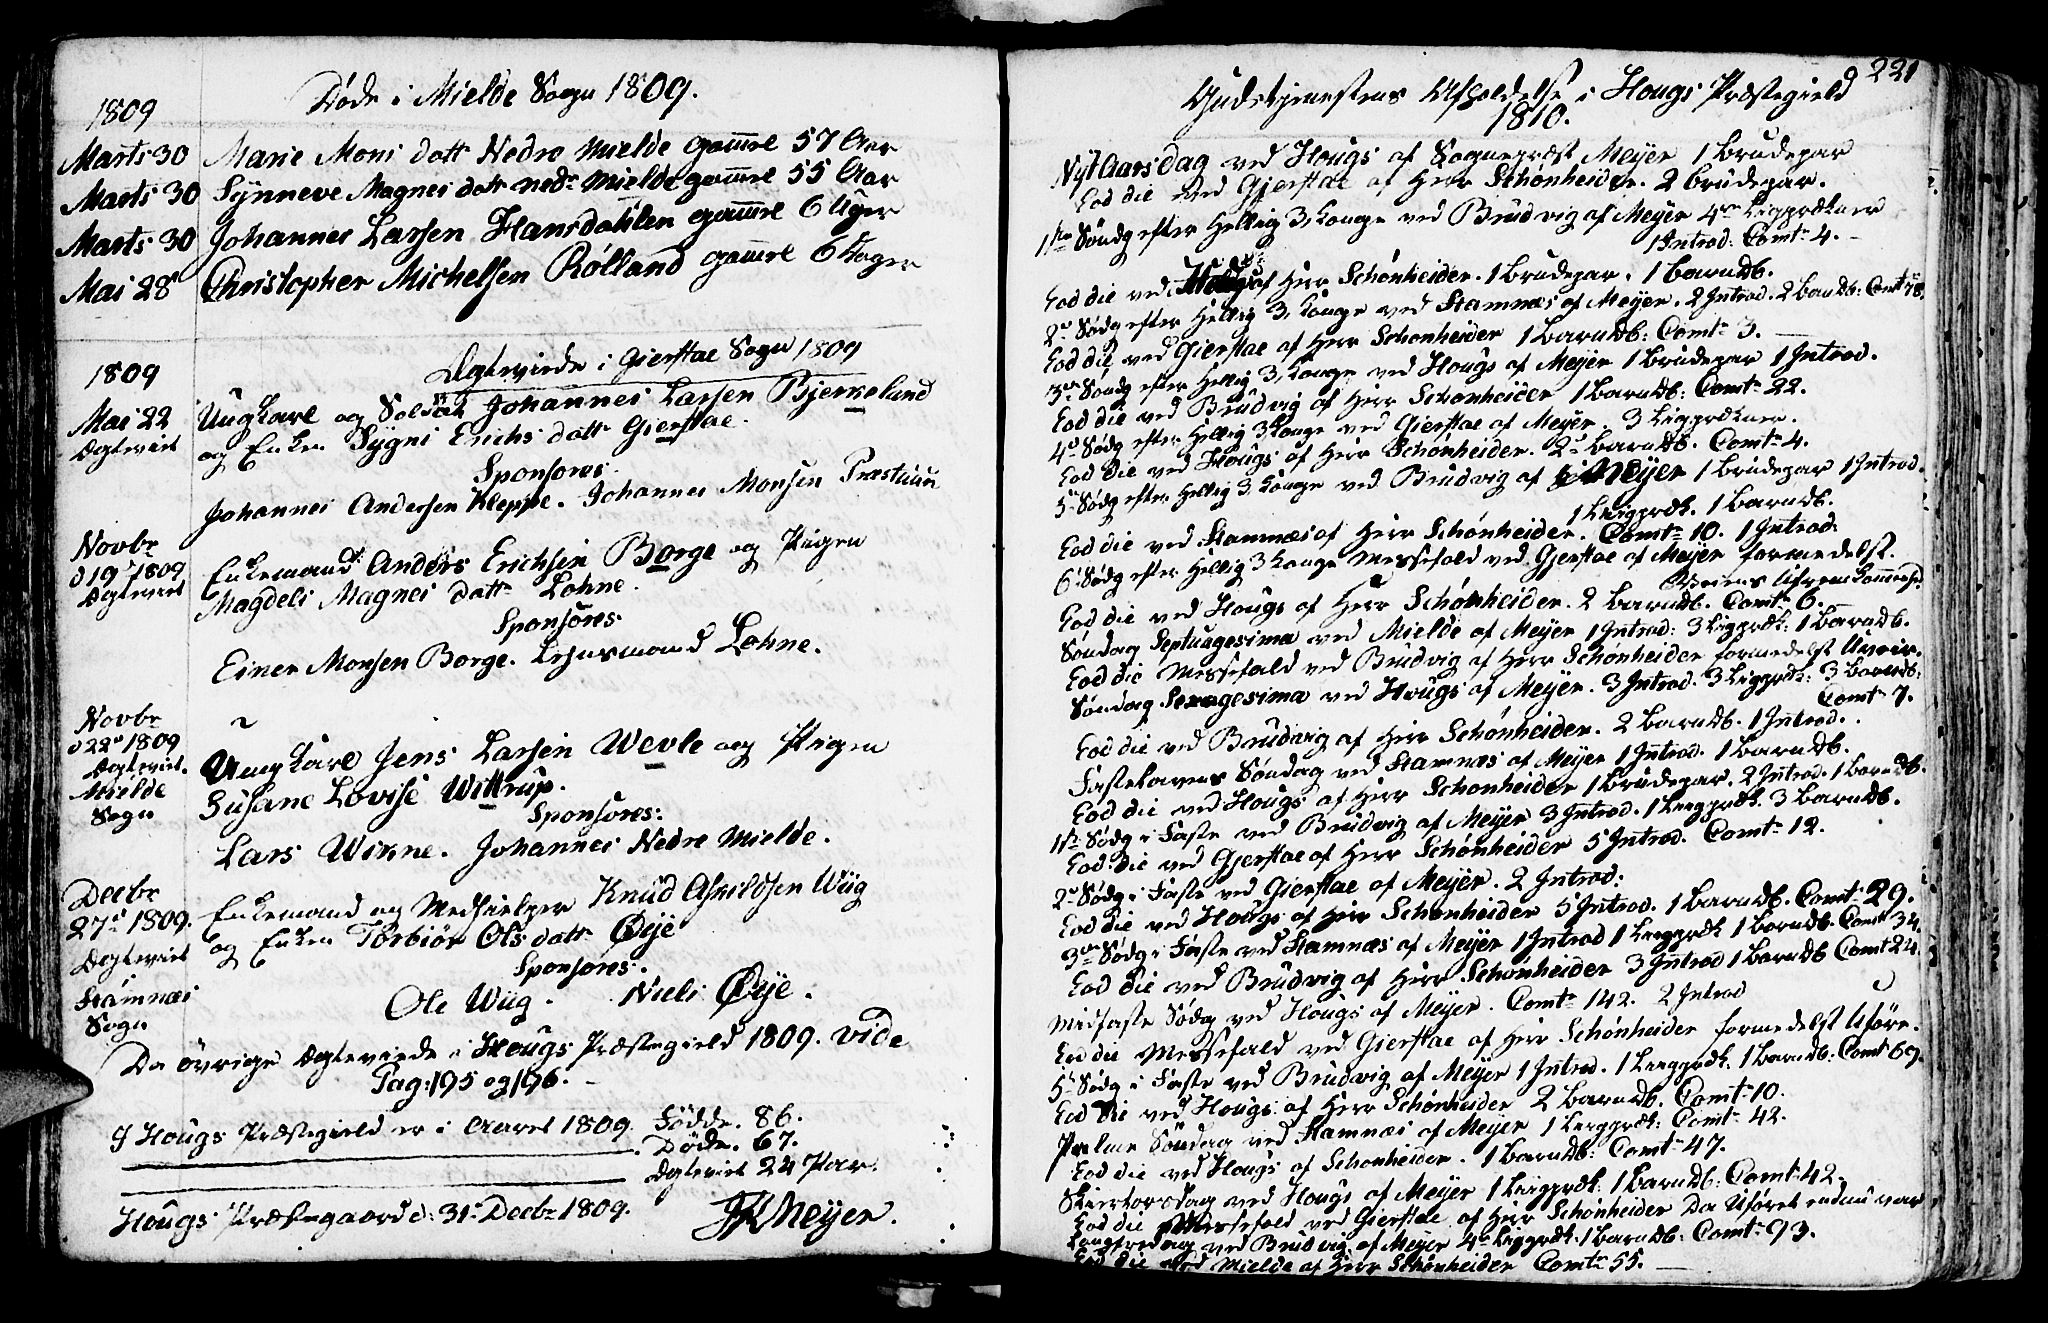 Døde i Mielde Sogn 1809.
1809
Marts 30 Marie Mons datt Nedre Mielde gamel 57 Aar
Marts 30 Synneve Magnes datt nedr Mielde gamel 55 Aar
Marts 30 Johannes Larsen Hansdahlen gamel 6 Uger
Mai 28 Christopher Michelsen Rølland gamel 6 Dager
1809 Ægteviede i Gierstae Sogn 1809
Mai 22 Ungkarl og Soldat Johannes Larsen Bjerkelund
Ægteviet og Enken Sygni Erichs datt Gierstae.
Sponsores.
Johannes Andersen Kleppe. Johannes Monsen Præstuun
Novbr
d 19 1809
Ægteviet
Enkemand Anders Erichsen Borge og Pigen
Magdeli Magnes datt Lohne.
Sponsores
Einer Monsen Borge. Lehnsmand Lohne.
Novbr
d 22 1809
Ægteviet.
Mielde
Sogn
Ungkarl Jens Larsen Wevle og Pigen
Susane Lovise Wittrup.
Sponsores:
Lars Wikne. Johannes Nedre Mielde.
Decbr
27 1809.
Ægteviet
Stamnæs
Sogn
Enkemand og Medhielper Knud Askildsen Wiig
og Enken Torbiør Ols datt Øye
Sponsores.
Ole Wiig. Niels Øye.
De övrige Ægteviede i Hougs Præstegield 1809. vide
Pag: 195 og 196.
I Hougs Præstegield er i Aaret 1809. Fødde. 86.
Døde. 67.
Ægteviet 24 Par.
Hougs Præstegaard d: 31 Decbr 1809. Meyer.
221
Gudstjenestens Afholdelse i Hougs Præstegield
1810.
Nyt Aars dag ved Hougs af Sognepræst Meyer 1 Brudepar
Eod die ved Gjerstae af Herr Schønheider. 2 brudepar.
1ste Søndg efter Hellig 3 Konge ved Brudvig af Meyer 4re Ligprækner
1 Introd: Comt 4.
Eod die ved af Herr Schønheider. 1 brudepar. 1 barndb.
2 Søndg efter Hellig 3 Konge ved Stamnæs af Meyer. 2 Introd. 2 barndb: Comt 78.
Eod die ved Gierstae af Herr Schønheider 1 barndb: Comt 3.
3 Søndg efter Hellig 3 Konge ved Hougs af Meyer 1 brudepar 1 Introd.
Eod die ved Brudvig af Herr Schønheider 1 barndb: Comt 22.
4 Søndg efter Hellig 3 Konge ved Gierstae af Meyer. 3 Ligprækner.
Eod die ved Hougs af Herr Schønheider. 2 barndb. Comt 4.
5 Søndg efter Hellig 3 Konge ved Brudvig af Meyer 1 brudepar 1 Introd.
1 Liigpræk. 1 barndb.
Eod die ved Stamnæs af Herr Schønheider. Comt 10. 1 Introd.
6 Søndg efter Hellig 3 Konge Messefald ved Gjerstae af Meyer formedelst
Veiens Ufremkommel:
Eod die ved Hougs af Herr Schønheider. 2 barndb. Comt 6.
Søndag Septuagesima ved Mielde af Meyer 1 Introd: 3 Ligpræk: 1 barndb.
Eod die Messefald ved Brudvig af Herr Schønheider formedelst Uveir.
Søndag Sexagesima ved Hougs af Meyer. 3 Introd. 3 Ligpræk: 3 barndb:
Comt 7.
Eod die ved Brudvig af Herr Schønheider. 2 barndb. 1 Introd.
Fastelavens Søndag ved Stamnæs af Meyer 1 Introd. 1 barndb.
Eod die ved Hougs af Herr Schønheider 1 brudepar. 2 Introd. 1 barndb.
1ste Søndg i Faste ved Brudvig af Meyer 3 Introd. 1 Liigpræk. 3 barndb.
Eod: die ved Gjerstae af Herr Schønheider 5 Introd. Comt 12.
2 Søndg i Faste ved Gierstae af Meyer. 2 Introd:
Eod die ved Hougs af Herr Schønheider 5 Introd. 1 barndb. Comt 29.
3 Søndg i Faste ved Stamnæs af Meyer 1 Introd 1 Liigpræk 1 barndb. Comt 34.
Eod die ved Brudvig af Herr Schønheider 3 Introd 1 barndb Comt 24.
Midfaste Søndg ved Hougs af Meyer. Comt 142. 2 Introd
Eod die Messefald ved Gierstae af Herr Schønheider formedelst Uføre.
5 Søndg i Faste ved Brudvig af Meyer 1 Introd. 1 Liigpræk. 1 barndb: Comt 69.
Eod die ved Hougs af Herr Schønheider 2 barndb. Comt 10.
Palme Søndag ved Stamnæs af Meyer 1 Liigpræk: Comt 42.
Eod die ved Hougs af Schønheider. 1 barndb: Comt 47.
Skiertorsdag ved Hougs af Meyer 1 Liigpræk: 1 barndb: Comt 42.
Eod die Messefald ved Gierstae af Herr Schønheider Da Uføret endnu var
Langfredag ved Brudvig af Meyer 4 Liigpræk. 1 barndb: Comt 93.
Eod die ved Mielde af Herr Schønheider Comt 55.